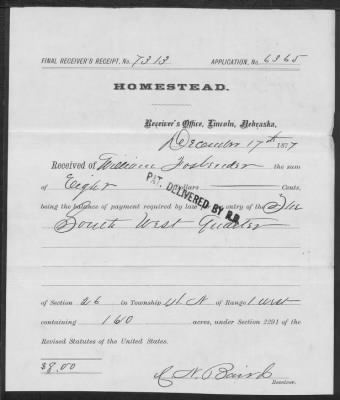 FINAL RECEIVER'S RECEIPT, No. 7313 APPLICATION, No. 6365
HOMESTEAD.
Receiver's Office, Lincoln, Nebraska,
December 17th 1877
Received of William Fosbender the sum
of Eight Dollars Cents,
being the balance of payment required by law entry of the
PAT. DELIVERED BY R.R.
South West Quarter
of Section 26 in Township 4 N of Range 1 West
containing 160 acres, under Section 2291 of the
Revised Statutes of the United States.
$8.00
Receiver.